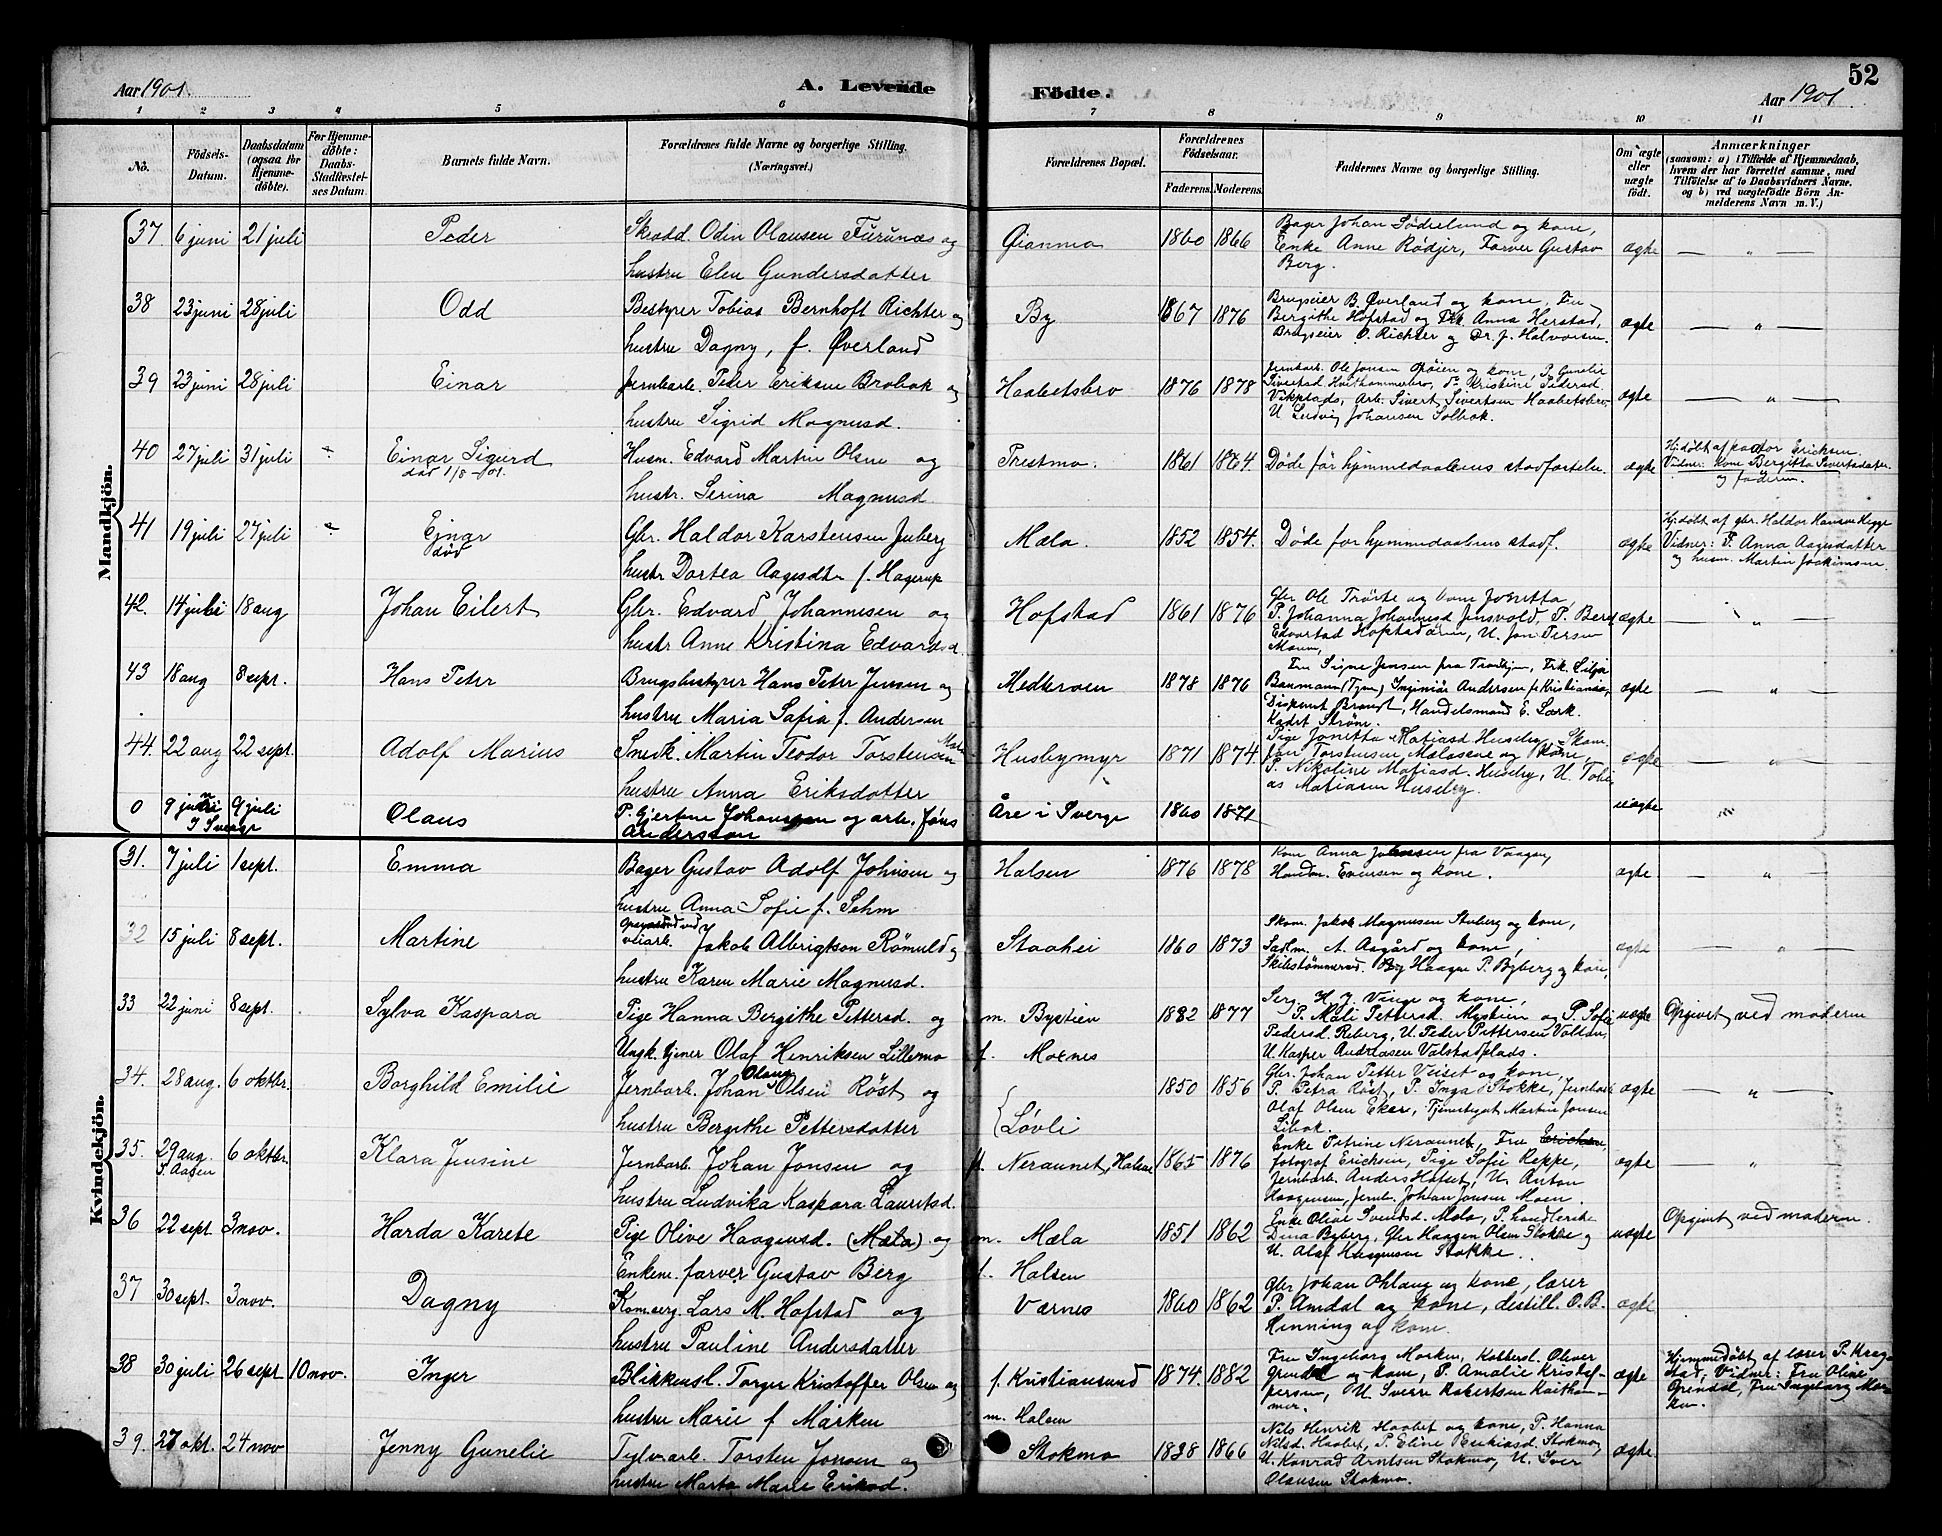 52
Aar 1901.
A. Levende Födte.
Aar 1901
1 2 3 4 5 6 7 8 9 10 11
No.
Födsels-Datum.
Daabsdatum (ogsaa for Hjemmedøbte).
For Hjemmedøbte: Daabs-Stadfæstelses Datum.
Barnets fulde Navn.
Forældrenes fulde Navne og borgerlige Stilling. (Næringsvei.)
Forældrenes Bopæl.
Forældrenes Fødselsaar.
Faderens. Moderens.
Faddernes Navne og borgerlige Stilling.
Om ægte eller uægte født.
Anmærkninger
(saasom: a) i Tilfælde af Hjemmedaab,
hvem der har forrettet samme, med
Tilföielse af to Daabsvidners Navne.
og b) ved uægtefödte Börn An-
melderens Navn m. V.)
Mandkjön.
37 6 juni 21 juli Peder Odin Olausen Furunæs og 1860 1866 Bager Johan Söderlund og kone,
Enke Anne Rödjer, Farver Gustav
Berg. ægte
hustru Elen Gundersdatter
38 23 juni 28 juli Odd Bestyrer Tobias Bernhoft Richter og By 1867 1876 Brugseier B. Øverland og kone,
Bergithe Hofstad og Frk. Anna Herstad,
Brugseier O. Richter og Dr. J. Halvorsen. ægte
hustru Dagny, f. Øverland
39 23 juni 28 juli Einar Jernbarb. Peder Eriksen Brobak og Haabetsbro 1876 1878 Jernbarb. Ole Jonsen og kone, P. Gunelie
P. Kristine Pedersd.
Arb. Sivert Sivertsen Haabetsbro
U. Ludvig Johansen Solbak. ægte
hustru Sigrid Magnusd.
40 27 juli 31 juli Einar Sigurd
død 1/8-01. Husm. Edvard Martin Olsen og 1861 1864 Døde før hjemmedaabens stadfæstelse ægte Hj.døbt af pastor Ericksen.
Vidner: kone Bergitta Sivertsdatter
og faderen.
hustr. Serina Magnusd
41 19 juli 27 juli Ejnar
død Gbr. Haldor Karstensen Juberg Mæla. 1852 1854. Døde for hjemmedaabens stadf. ægte Hj.døbt af gbr. Haldor Hansen
Vidner: P. Anna Aagesdatter
og husm. Martin Joakimsen.
hustr Dortea Aagesdtr f. Hagerup
42. 14 juli 18 aug Johan Eilert Gbr. Edvard Johannesen og Hofstad 1861 1876 Gbr Ole Trötte og kone Jonetta,
P. Johanna Johannesd P. Berd
U. Jon Persen
Moen, ægte
hustr Anne Kristina Edvardsd.
43 18 aug 8 sept. Hans Peter Brugsbestyrer Hans Peter Jensen og 1878 1876 Fru Signe Jensen fra Trondhjem, Frk. Lilja
Baumann Ingeniör Andersen fr Kristiania,
Disponent Brandt, Handelsmand E. Lærk.
Kadet Ström. ægte
hustru Maria Sofia f. Andersen
44. 22 aug 22 sept. Adolf Marius Snedk. Martin Teodor Torstensen Husbymyr 1871 1874. Pige Jonetta Matiasd Huseby, Skom.
Torstensen og kone,
P. Nikoline Matiasd. Huseby, U. Tobi
as Matiasen Huseby. ægte
hustru Anna Eriksdatter
0 9 juni
I Sverge 9 juli Olaus P. Gjertine Johansen og arb. Jöns
Andersson Åre i Sverge 1860 1871 uægte
Kvindekjön.
31. 7 juli 1 sept. Emma Bager Gustav Adolf Johnsen og Halsen 1876 1878 Kone Anna Johansen fra Vaagen,
Handm. Evensen og kone. ægte
hustru Anna Sofie f. Sehm
32 15 juli 8 sept. Martine veiarb. Jakob Albrigtson Römuld og Staahei 1860 1873 Skom. Jakob Magnussen Stuberg og kone,
Sadlm. A. Aagård og kone,
Haagen P. Byberg og kone, ægte
hustru Karen Marie Magnusd.
33 22 juni 8 sept. Sylva Kaspara Pige Hanna Bergithe Pettersd. og m. Bystien 1882 1877 Serg. H. J. Vinge og kone,
P. Mali Pettersd. Mystien og P. Sofie
Pedersd. Reberg, U. Peder Pettersen
U. Kasper Andreasen Valstadplads. uægte Opgivet ved moderen
Ungk. tjener Olaf Henriksen Lillemo f. Moxnes
34. 28 aug. 6 oktbr. Borghild Emilie Jernbarb. Johan Olaus Olsen Röst og Løvli 1850 1856 Gbr. Johan Petter Veiset og kone,
P. Petra Röst, P. Inga Stokke, Jernbarb
Olaf Olsen Eker, Martin Jonsen
Libak. ægte
hustru Bergithe Pettersdatter
35. 29 aug.
S. Aasen 6 oktbr. Klara Jensine Jernbarb. Johan Jonsen og Neraunet, Halsen 1865 1876 Enke Petrine Neraunet, Fru
fotograf Erichsen, Pige Sofie Reppe,
Jernbarb. Anders Hofset, U. Anton
Haagensen, Jernb. Johan Jonsen Moen. ægte
hustru Ludvika Kaspara Lauritsd.
36 22 sept. 3 nov. Harda Karete Pige Olive Haagensd. (Mæla) og m. Mæla 1851 1862 Enke Olive Svendsd. Mæla, P. handlerske
Dina Byberg, Gbr Haagen Olsen Stokke og
U. Olaf Haagensen Stokke. uægte Opgivet ved moderen.
Enkem. farver Gustav Berg f. Halsen
37 30 sept. 3 nov. Dagny Kom.serg. Lars M. Hofstad og Værnes 1860 1862 Gbr Johan Öhlaug og kone, lærer
P. Amdal og kone, destill. O.B.
Henning og kone. ægte
hustru Pauline Andersdatter
38 30 juli 26 sept 10 nov. Inger Blikkensl. Torger Kristoffer Olsen og f. Kristiansund 1874. 1882 Fru Ingeborg Morken, Kobbersl. Oliver
Grendal og kone, P. Amalie Kristof-
persen, U. Sverre Robertsen Kaitham-
mer. ægte Hjemmedöbt af lærer P. Krog-
stad, Vidner: Fru Oline
Grendal, Fru Ingeborg Mor-
ken.
hustru Marie f Marken m. Halsen
39. 27 okt. 24 nov Jenny Gunelie Teglv.arb. Torsten Jonsen og Stokmo 1838 1866 Nils Henrik Haabet og kone, P. Hanna
Nilsd. Haabet, P. Eline Stokmo,
U. Konrad Arntsen Stokmo, U. Iver
Olausen Stokmo. ægte
hustru Marta Marie Eriksd.